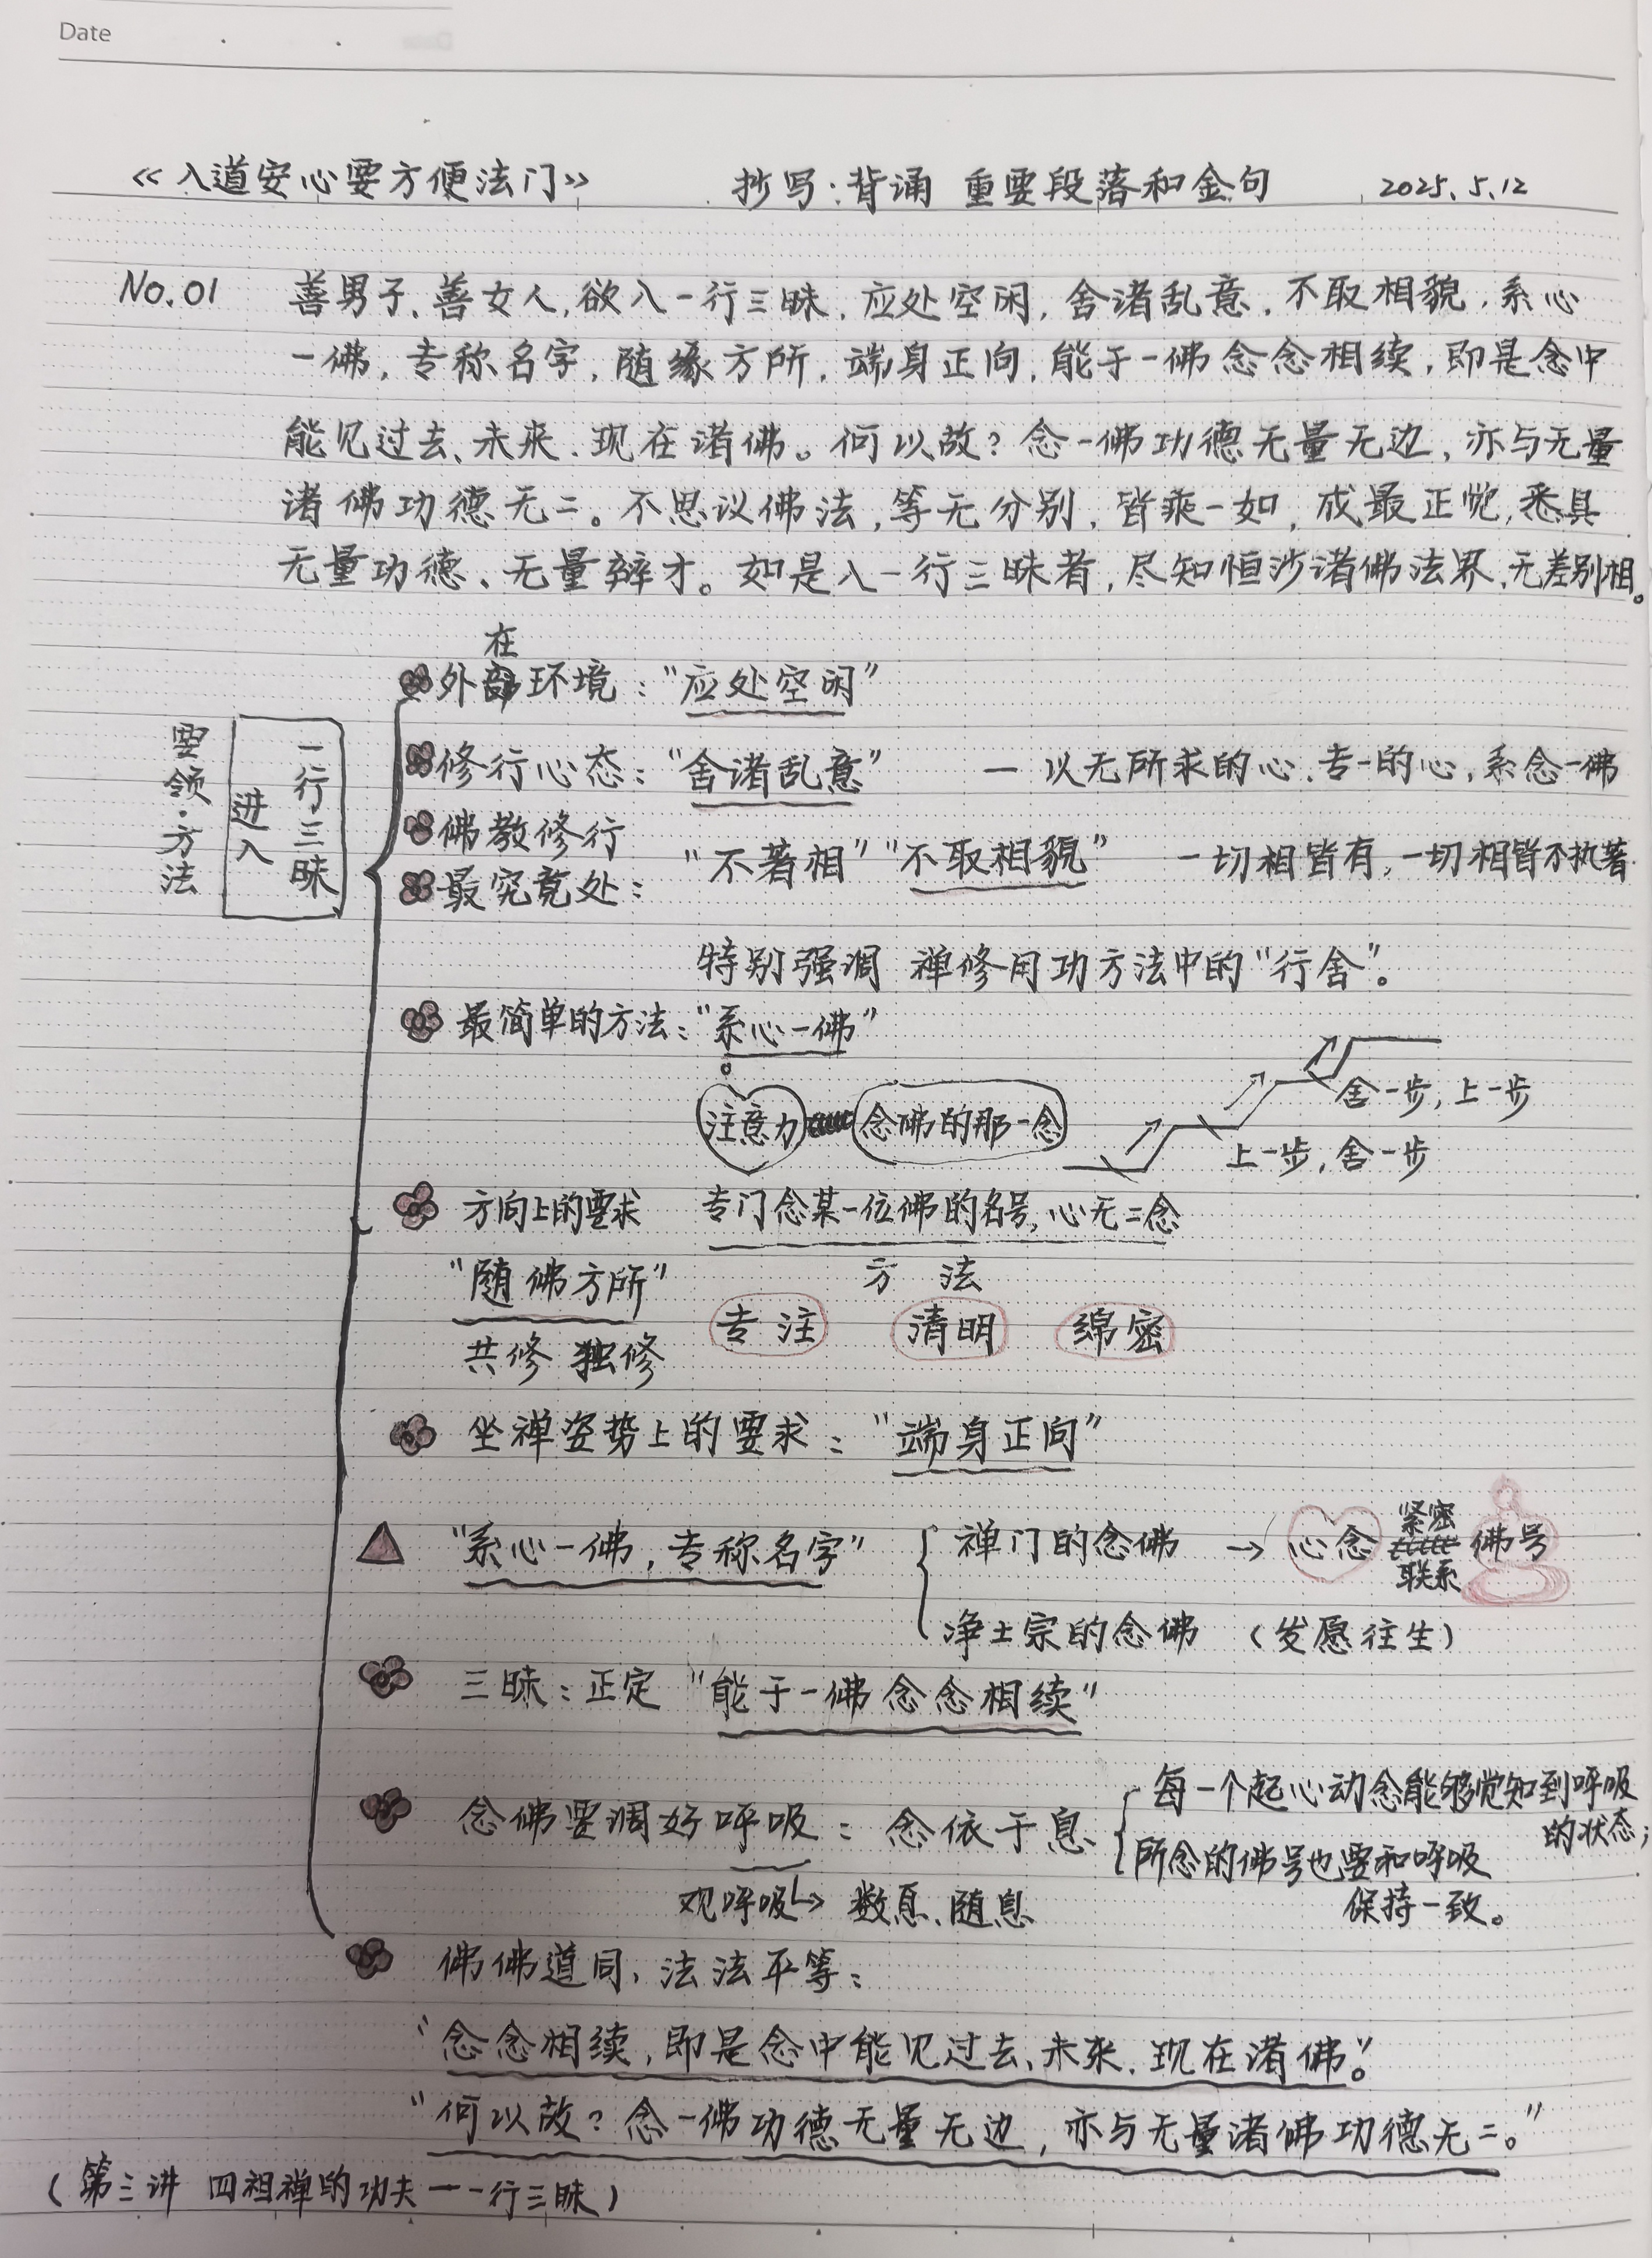 Date
《入道安心要方便法门》 抄写:背诵 重要段落和金句 2025.5.12
No.01 善男子、善女人,欲入一行三昧,应处空闲,舍诸乱意,不取相貌,系心
一佛,专称名字,随缘方所,端身正向,能于一佛念念相续,即是念中
能见过去、未来、现在诸佛。何以故?念一佛功德无量无边,亦与无量
诸佛功德无二。不思议佛法,等无分别,皆乘一如,成最正觉,悉具
无量功德、无量辩才。如是入一行三昧者,尽知恒沙诸佛法界,无差别相。
在
外部环境:“应处空闲”
要领·方法
进入
一行三昧
修行心态:“舍诸乱意” — 以无所求的心、专一的心,系念一佛
佛教修行
最究竟处: “不著相”“不取相貌” 一切相皆有,一切相皆不执著
特别强调 禅修用功方法中的“行舍”。
最简单的方法:“系心一佛”
注意力 念佛的那一念
舍一步,上一步
上一步,舍一步
方向上的要求 专门念某一位佛的名号,心无二念
“随佛方所” 方法
专注 清明 绵密
共修 独修
坐禅姿势上的要求:“端身正向”
“系心一佛,专称名字” 禅门的念佛 → 心念 紧密联系 佛号
净土宗的念佛 (发愿往生)
三昧:正定 “能于一佛念念相续”
念佛要调好呼吸:念依于息
每一个起心动念能够觉知到呼吸
的状态;
所念的佛号也要和呼吸
保持一致。
观呼吸→ 数息、随息
佛佛道同,法法平等:
“念念相续,即是念中能见过去、未来、现在诸佛。”
“何以故?念一佛功德无量无边,亦与无量诸佛功德无二。”
(第三讲 四祖禅的功夫——一行三昧)